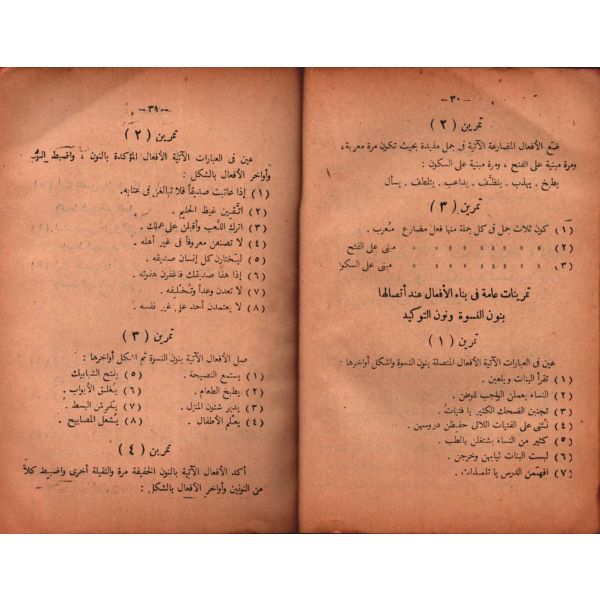 — ٣٠ —
تمرين ( ٢ )
ضع الأفعال المضارعة الآتية فى جمل مفيدة بحيث تكون مرة معربة ،
ومرة مبنية على الفتح ، ومرة مبنية على السكون :
يطبخ . يهذب . ينظف . يداعب . يتلطف . يسأل
تمرين ( ٣ )
(١) كون ثلاث جمل فى كل جملة منها فعل مضارع معرب .
(٢) » » » » » » » » مبنى على الفتح
(٣) » » » » » » » » مبنى على السكو
تمرينات عامة فى بناء الأفعال عند أتصالها
بنون النسوة ونون التوكيد
تمرين ( ١ )
عين فى العبارات الآتية الأفعال المتصلة بنون النسوة واشكل أواخرها :
(١) تقرأ البنات ويلعبن .
(٢) النساء يعملن الواجب للوطن .
(٣) تجنبن الضحك الكثير يا فتيات .
(٤) نثنى على الفتيات اللاتى حفظن دروسهن .
(٥) كثير من النساء يشتغلن بالطب .
(٦) لبست البنات ثيابهن وخرجن .
(٧) افهمن الدرس يا تلميذات .
— ٣١ —
تمرين ( ٢ )
عين فى العبارات الآتية الأفعال المؤكدة بالنون ، واضبط النون
وأواخر الأفعال بالشكل :
(١) إذا عاتبت صديقاً فلا تبالغن فى عتابه .
(٢) اتقين غيظ الحليم .
(٣) اترك اللعب وأقبلن على عملك .
(٤) لا تصنعن معروفاً فى غير أهله .
(٥) ليختارن كل إنسان صديقه .
(٦) إذا هفا صديقك فاغفرن هفوته .
(٧) لا تعدن وعداً وتخلفه .
(٨) لا يعتمدن أحد على غير نفسه .
تمرين ( ٣ )
صل الأفعال الآتية بنون النسوة ثم اشكل أواخرها :
(١) يستمع النصيحة . (٥) يفتح الشبابيك
(٢) يطبخ الطعام . (٦) يغلق الأبواب .
(٣) يدير شئون المنزل . (٧) يفرش البسط .
(٤) يعلم الأطفال . (٨) يشعل المصابيح
تمرين ( ٤ )
أكد الأفعال الآتية بالنون الخفيفة مرة والثقيلة أخرى واضبط كلا
من النونين وأواخر الأفعال بالشكل :